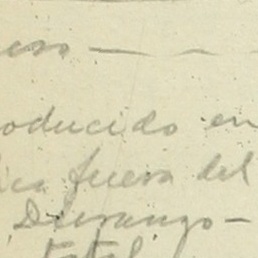 oducido en
ica fuera del
Durango —
total